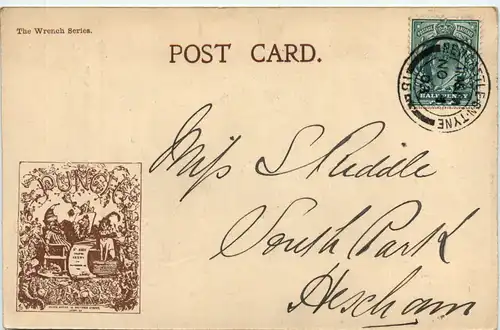 The Wrench Series.
POST CARD.
HALFPENNY
NEWCASTLE ON TYNE
PUNCH
Miss S Riddle
South Park
Hexham